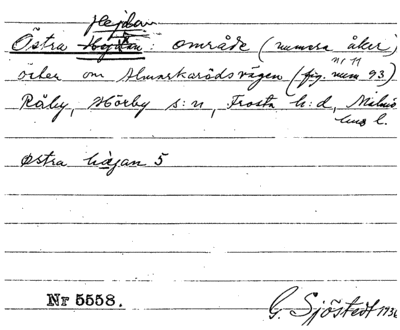 Hejdan
Östra Höjdan: område (numera åker)
nr 11
öster om Almarkarödsvägen (fig. num 93)
Råby, Hörby s:n, Frosta h:d, Malmö
hus l.
østra hàjan 5
Nr 5558.
G. Sjöstedt 1936